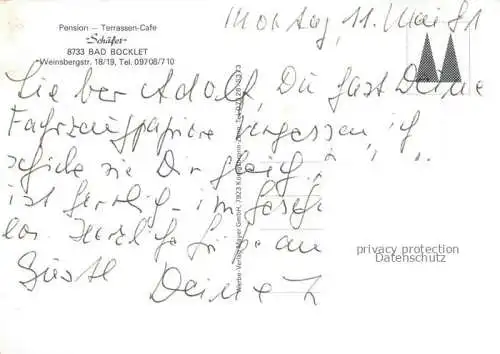 Pension — Terrassen-Cafe
Schäfer
8733 BAD BOCKLET
Weinsbergstr. 18/19, Tel. 09708/710
Montag, 11. Mai 81
Lieber Adolf, Du hast Deine
Fahrzeugpapiere vergessen, ich
schicke sie Dir gleich.
ist herrlich - im
los. Herzliche Grüße an
Deine
Werbe-Verlag Mayer GmbH, 7923 Königsbronn-Zang, Tel.
privacy protection
Datenschutz